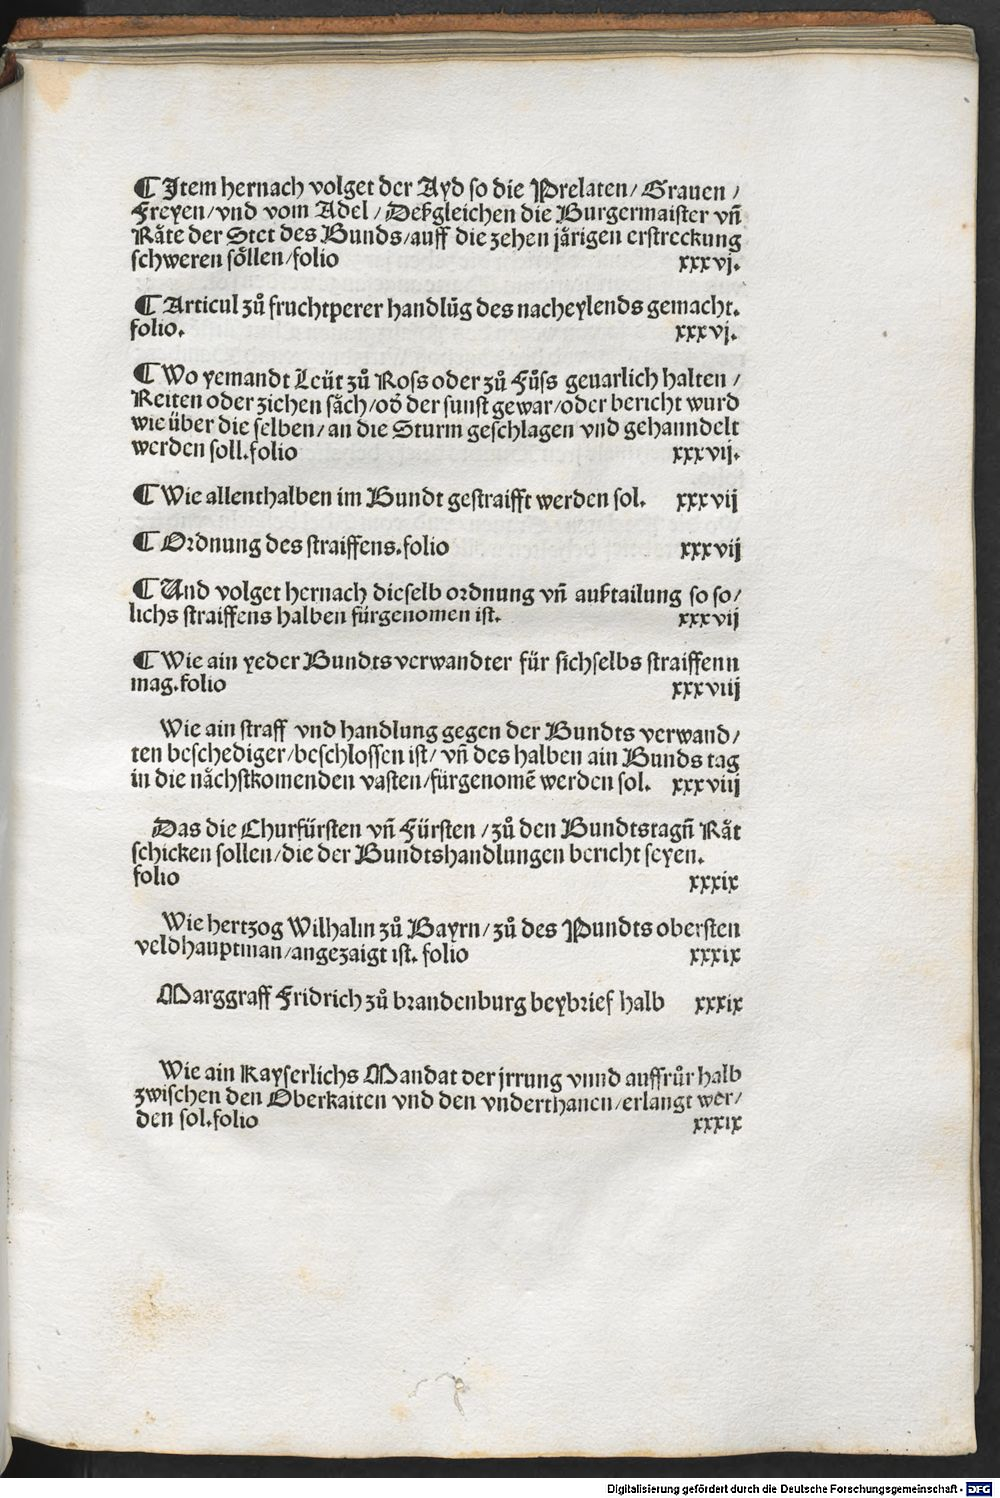 ¶ Item hernach volget der Ayd so die Prelaten/ Grauen /
Freyen/vnd vom Adel / Deßgleichen die Burgermaister vn̄
Raͤte der Stet des Bunds/auff die zehen jaͤrigen erstreckung
schweren soͤllen/folio xxxvj.
¶ Articul zuͦ fruchtperer handlūg des nacheylends gemacht.
folio. xxxvj.
¶ Wo yemandt Leüt zuͦ Ross oder zuͦ Fuͦss geuarlich halten /
Reiten oder ziehen saͤch/od̄ der sunst gewar/oder bericht wurd
wie über die selben/an die Sturm geschlagen vnd gehanndelt
werden soll.folio xxxvij.
¶ Wie allenthalben im Bundt gestraifft werden sol. xxxvij
¶ Ordnung des straiffens.folio xxxvij
¶ Und volget hernach dieselb ordnung vn̄ außtailung so so/
lichs straiffens halben fürgenomen ist. xxxvij
¶ Wie ain yeder Bundtsverwandter für sichselbs straiffenn
mag.folio xxxviij
Wie ain straff vnd handlung gegen der Bundts verwand/
ten beschediger/beschlossen ist/ vn̄ des halben ain Bunds tag
in die naͤchstkomenden vasten/fürgenomē werden sol. xxxviij
Das die Churfürsten vn̄ Fürsten /zuͦ den Bundtstagn̄ Raͤt
schicken sollen/die der Bundtshandlungen bericht seyen.
folio xxxix
Wie hertzog Wilhalm zuͦ Bayrn/ zuͦ des Pundts obersten
veldhauptman/angezaigt ist. folio xxxix
Marggraff Fridrich zuͦ brandenburg beybrief halb xxxix
Wie ain Kayserlichs Mandat der jrrung vnnd auffruͦr halb
zwischen den Oberkaiten vnd den vnderthanen/erlangt wer/
den sol.folio xxxix
Digitalisierung gefördert durch die Deutsche Forschungsgemeinschaft - DFG